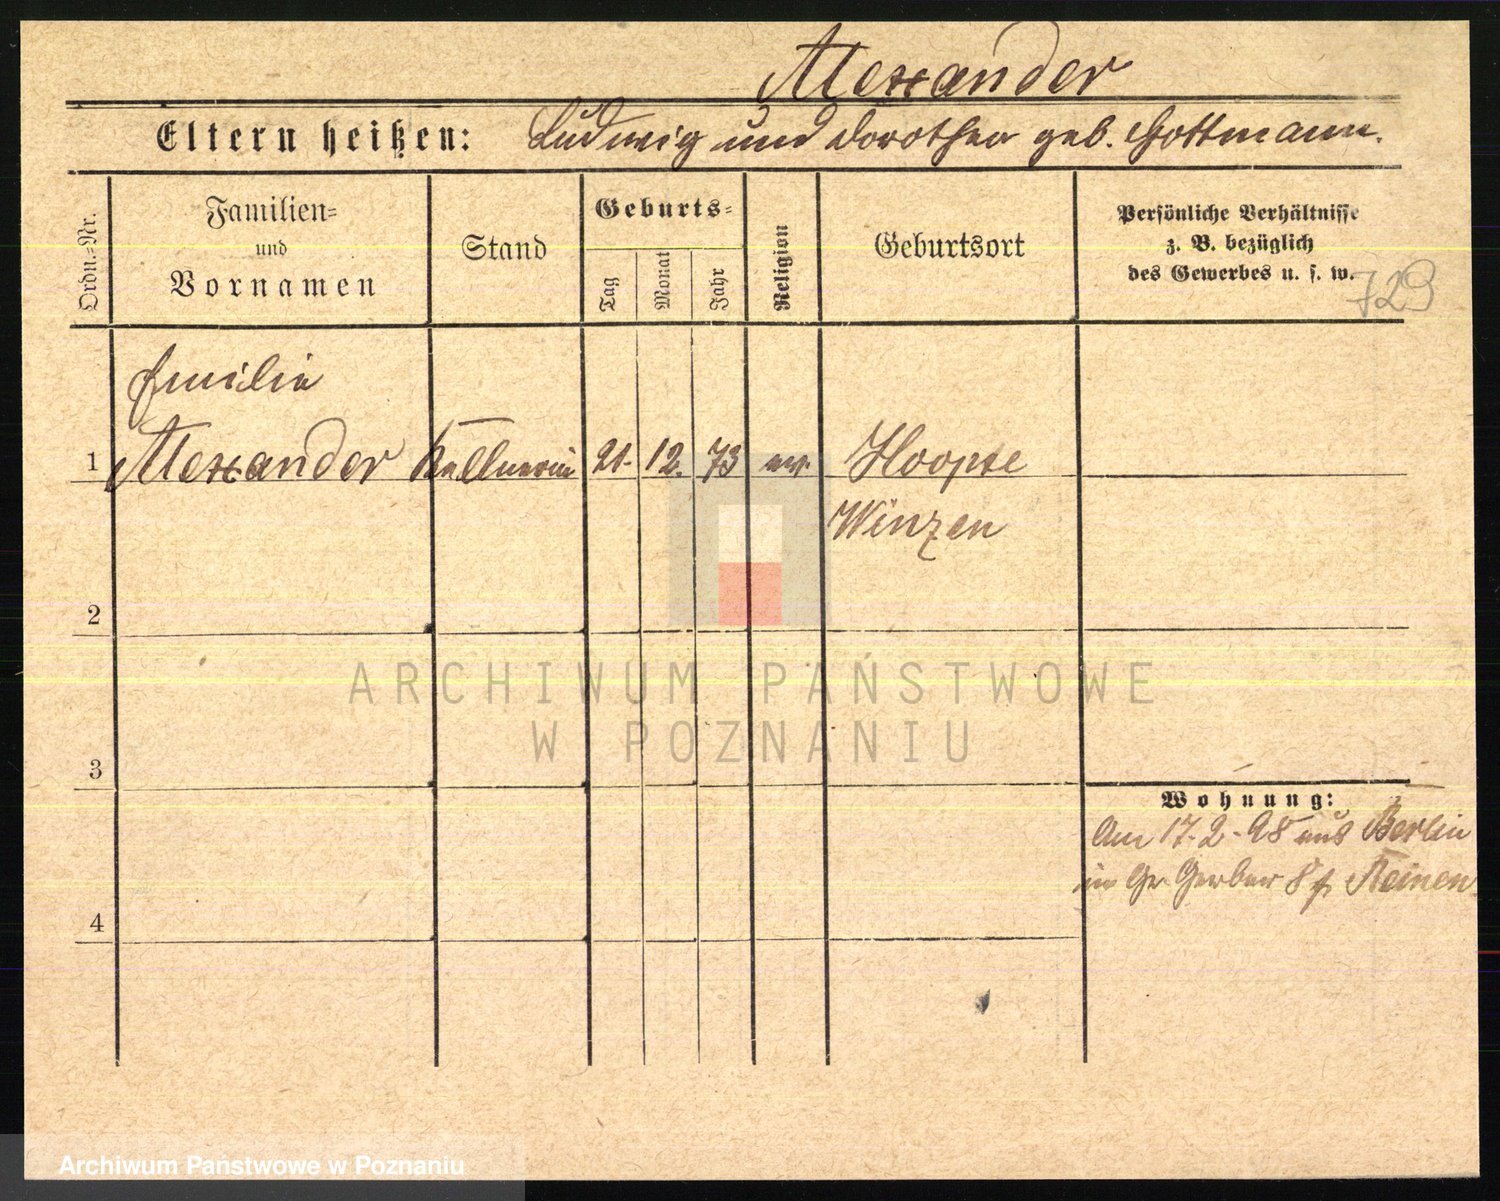 Alexander
Eltern heißen: Ludwig und Dorothea geb. Gottmann.
Ordn.-Nr.
Familien-
und
Vornamen
Stand
Geburts-
Tag
Monat
Jahr
Religion
Geburtsort
Persönliche Verhältnisse
z. B. bezüglich
des Gewerbes u. s. w.
729
Emilie
1 Alexander Kellnerin 21. 12. 73 ev. Hoopte
Winzen
2
3
4
Wohnung:
Am 17.2.98 aus Berlin
in Gr. Gerber 8 Reinen
ARCHIWUM PAŃSTWOWE
W POZNANIU
Archiwum Państwowe w Poznaniu